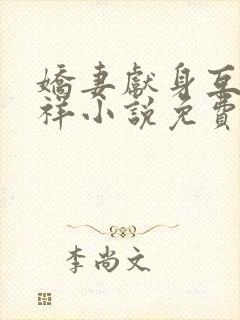 嬌妻獻身互
祥小說免費
李尚文